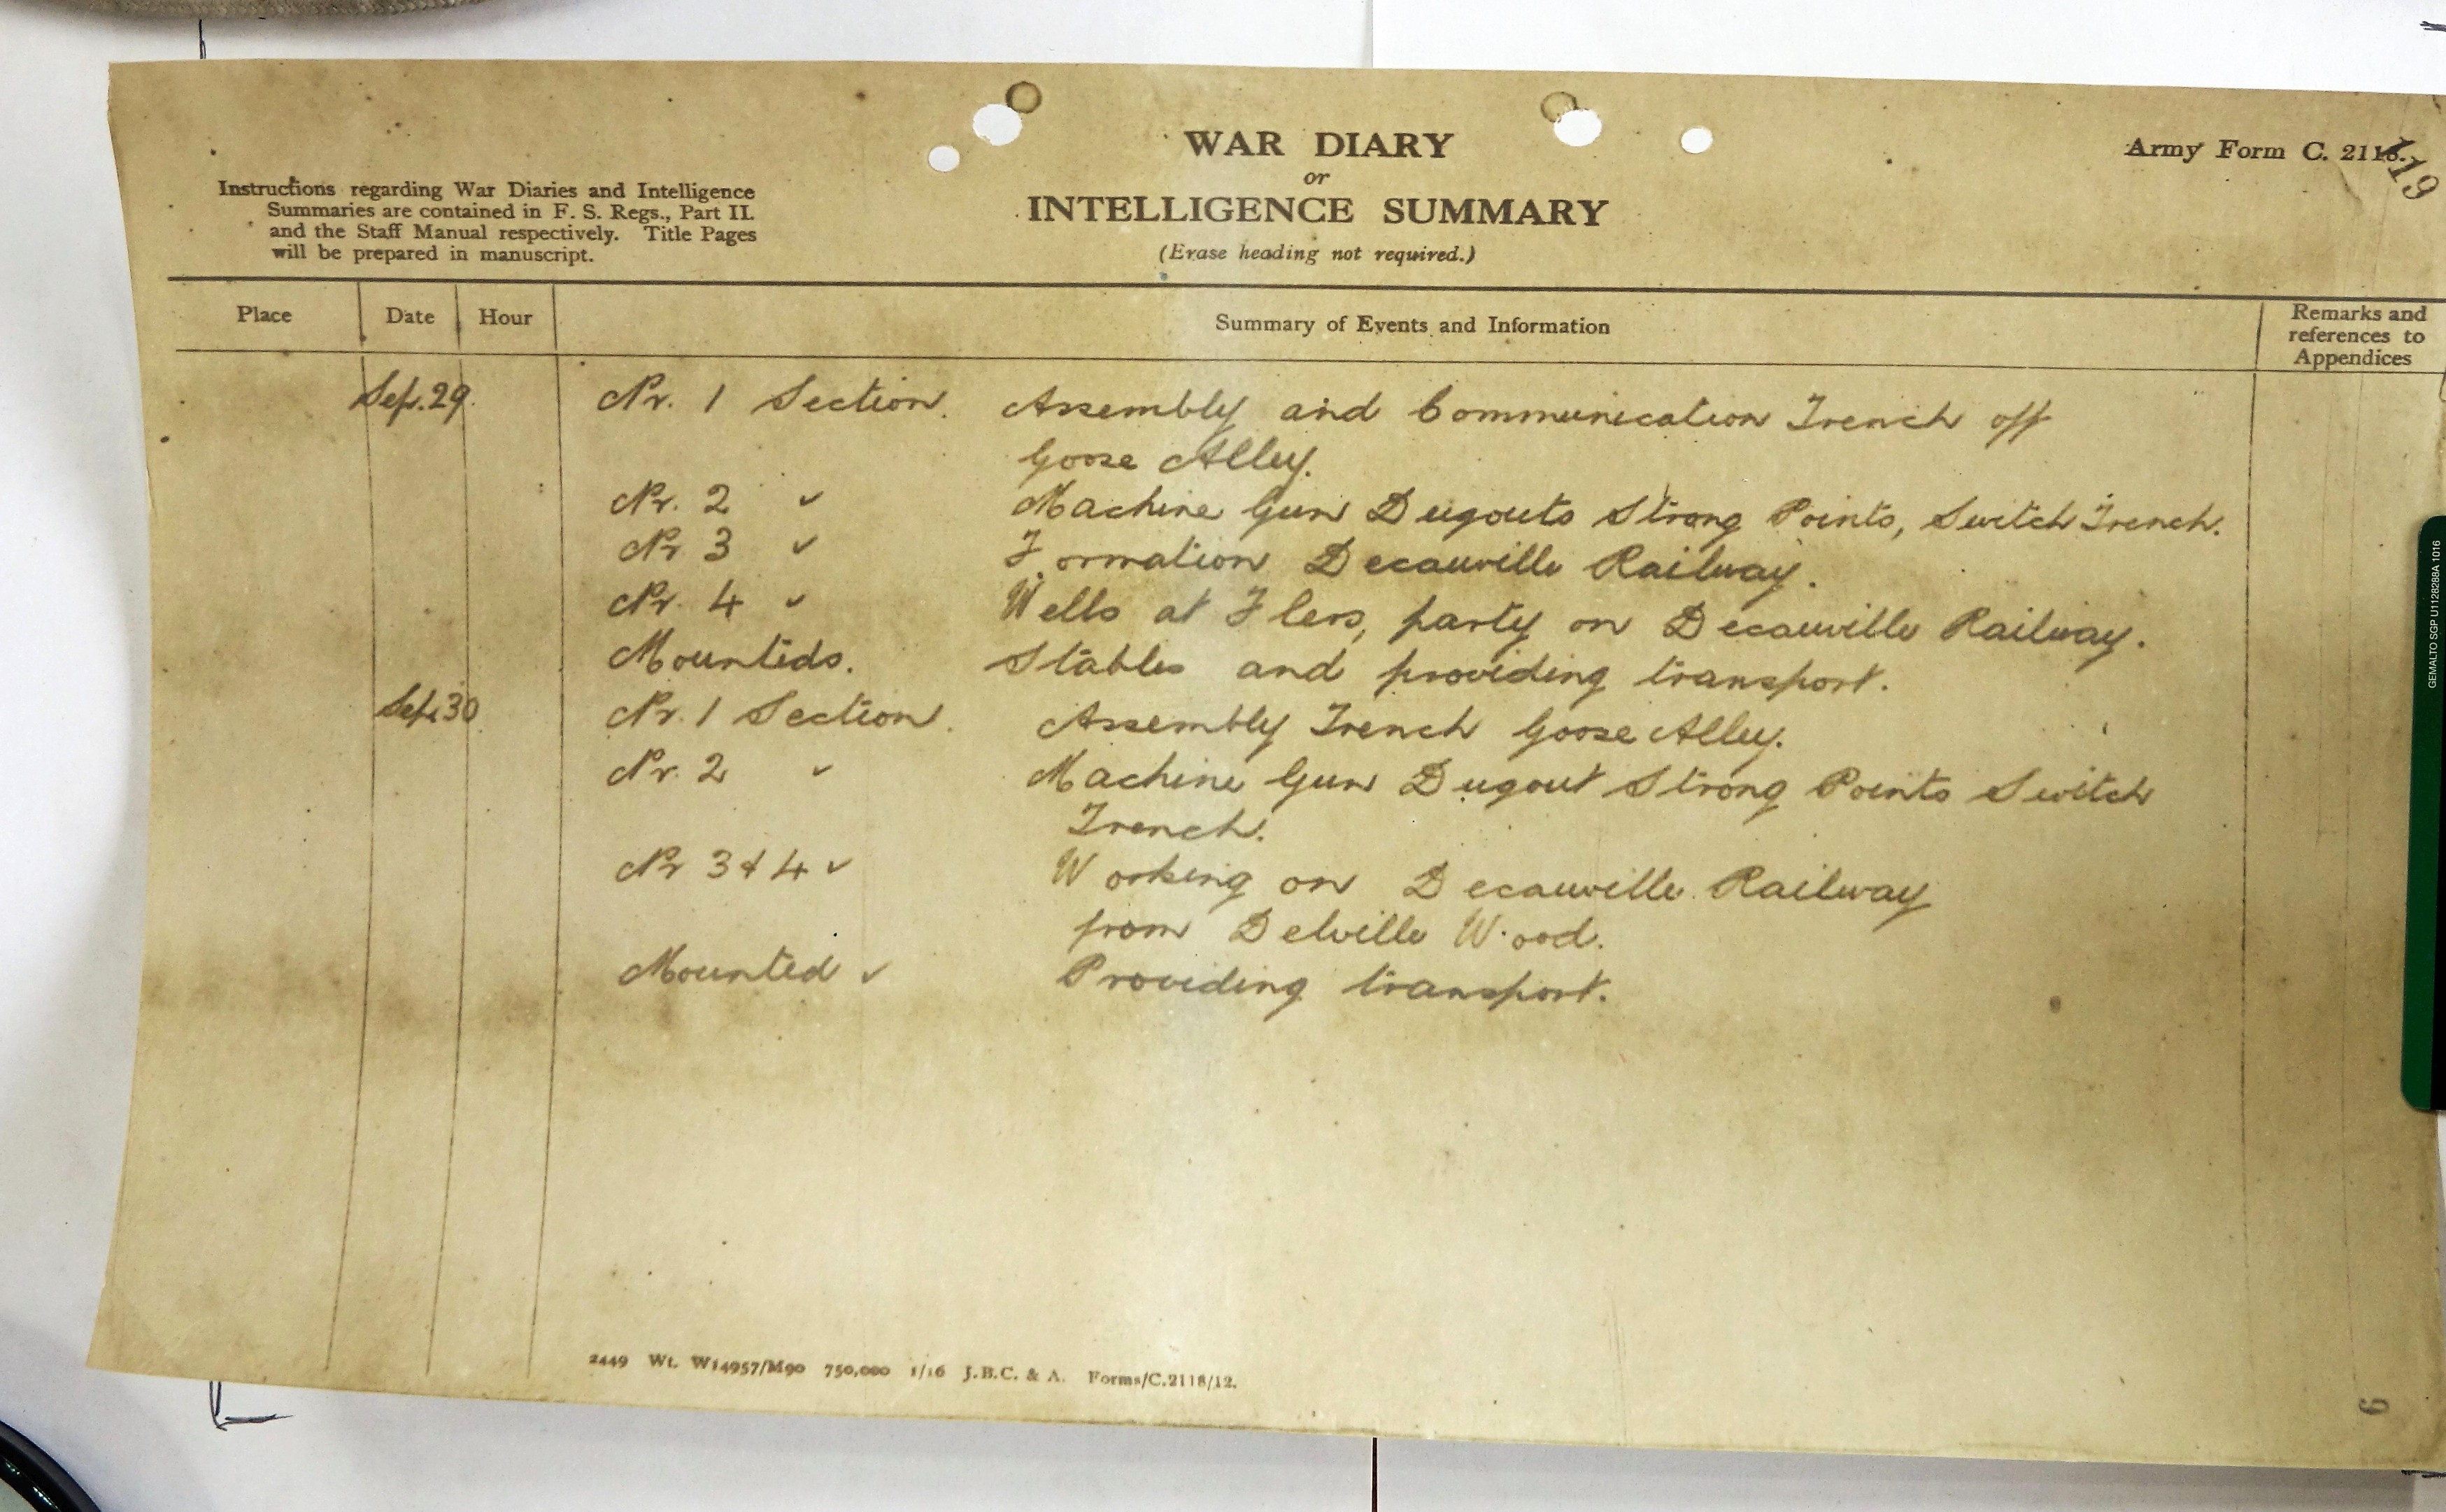 WAR DIARY
or
INTELLIGENCE SUMMARY
(Erase heading not required.)
Army Form C. 2118.
119
Instructions regarding War Diaries and Intelligence
Summaries are contained in F. S. Regs., Part II.
and the Staff Manual respectively. Title Pages
will be prepared in manuscript.
Place Date Hour Summary of Events and Information Remarks and
references to
Appendices
Sep. 29. Nr. 1 Section. Assembly and Communication Trench off
Goose Alley.
Nr. 2 " Machine Gun Dugouts Strong Points, Switch Trench.
Nr 3 " Formation Decauville Railway.
Nr. 4 " Wells at Flers, party on Decauville Railway.
Mounteds. Stables and providing transport.
Sep. 30 Nr. 1 Section. Assembly Trench Goose Alley.
Nr. 2 " Machine Gun Dugout Strong Points Switch
Trench.
Nr 3 & 4 " Working on Decauville Railway
from Delville Wood.
Mounted " Providing transport.
2449 Wt. W14957/M90 750,000 1/16 J.B.C. & A. Forms/C.2118/12.
6
GEMALTO SGP U1128288A 1016